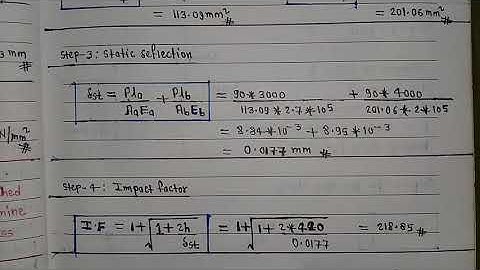 = 113.09 mm² = 201.06 mm²
3 mm
Step-3: Static deflection
δst = Pla/AaEa + Plb/AbEb = 90*3000/113.09*2.7*10⁵ + 90*4000/201.06*2*10⁵
N/mm²
= 8.84*10⁻³ + 8.95*10⁻³
= 0.0177 mm
Step-4: Impact factor
I.F = 1+√1+2h/δst = 1+√1+2*420/0.0177 = 218.85